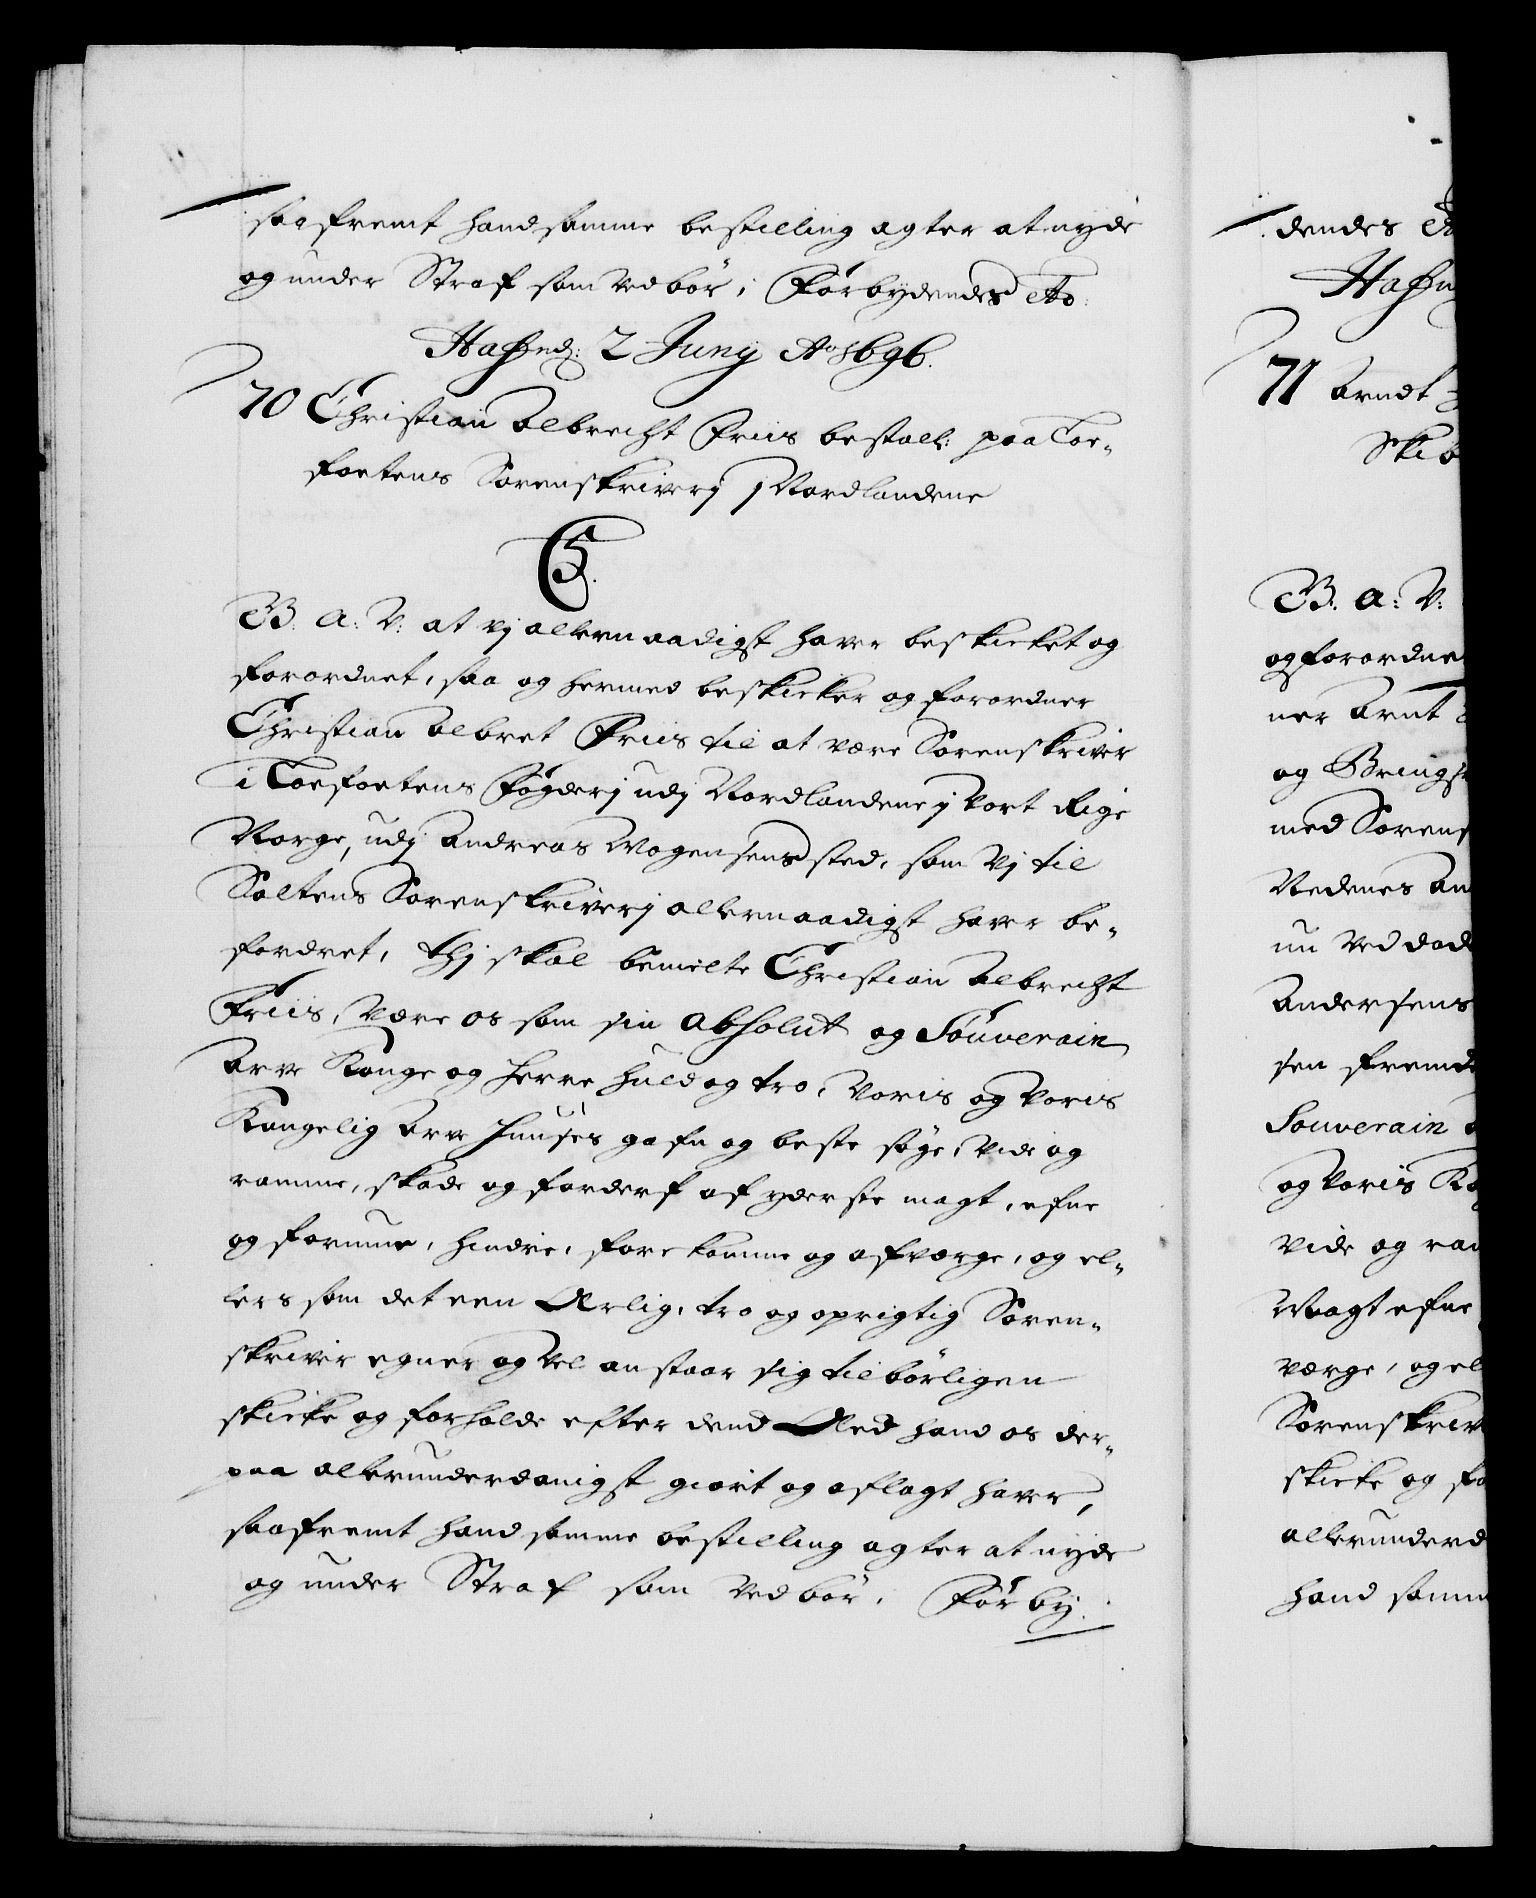 saafremt hand samme bestilling agter at nyde
og under Straf som vedbör, Forbydendes etc:
Hafnæ: 2 Junÿ Ao 1696.
70 Christian Albrecht Friis bestall: paa Loe-
foetens Sorenskriverj j Nordlandene
C5.
G. A: V: at vj allernaadigst haver beskicket og
forordnet, saa og hermed beskicker og forordner
Christian Albret Friis til at være Sorenskriver
i Loefoetens Fogderj udj Nordlandene j vort Rige
Norge, udj Andreas Mogensens sted, som vj til
Saltens Sorenskriverj allernaadigst haver be-
fordret, thj skal bemelte Christian Albrecht
Friis, være os som sin absolut og Souverain
Arve Konge og Herre huld og tro, voris og voris
Kongelig Arve Huuses gafn og beste söge, vide og
ramme, skade og forderf af yderste magt, efne
og formue, hindre, forekomme og afværge, og el-
lers som det een Ærlig, tro og oprigtig Soren-
skriver egner og vel anstaar sig tilbörligen
skicke og forholde efter dend Æed hand os der-
paa allerunderdanigst giort og aflagt haver,
saafremt hand samme bestilling agter at nyde
og under Straf som vedbör. Forby:
dendes
Hafn
71 Arndt
Ski
G. A: V:
og forordne
ner Arnt
og Brings
med Sorens
Nedenes Am
nu ved död
Andersens
sen fremd
Souverain
og voris Ko
vide og ram
Magt efne
værge, og el
Sorenskriv
skicke og fo
allerunderd
hand samm